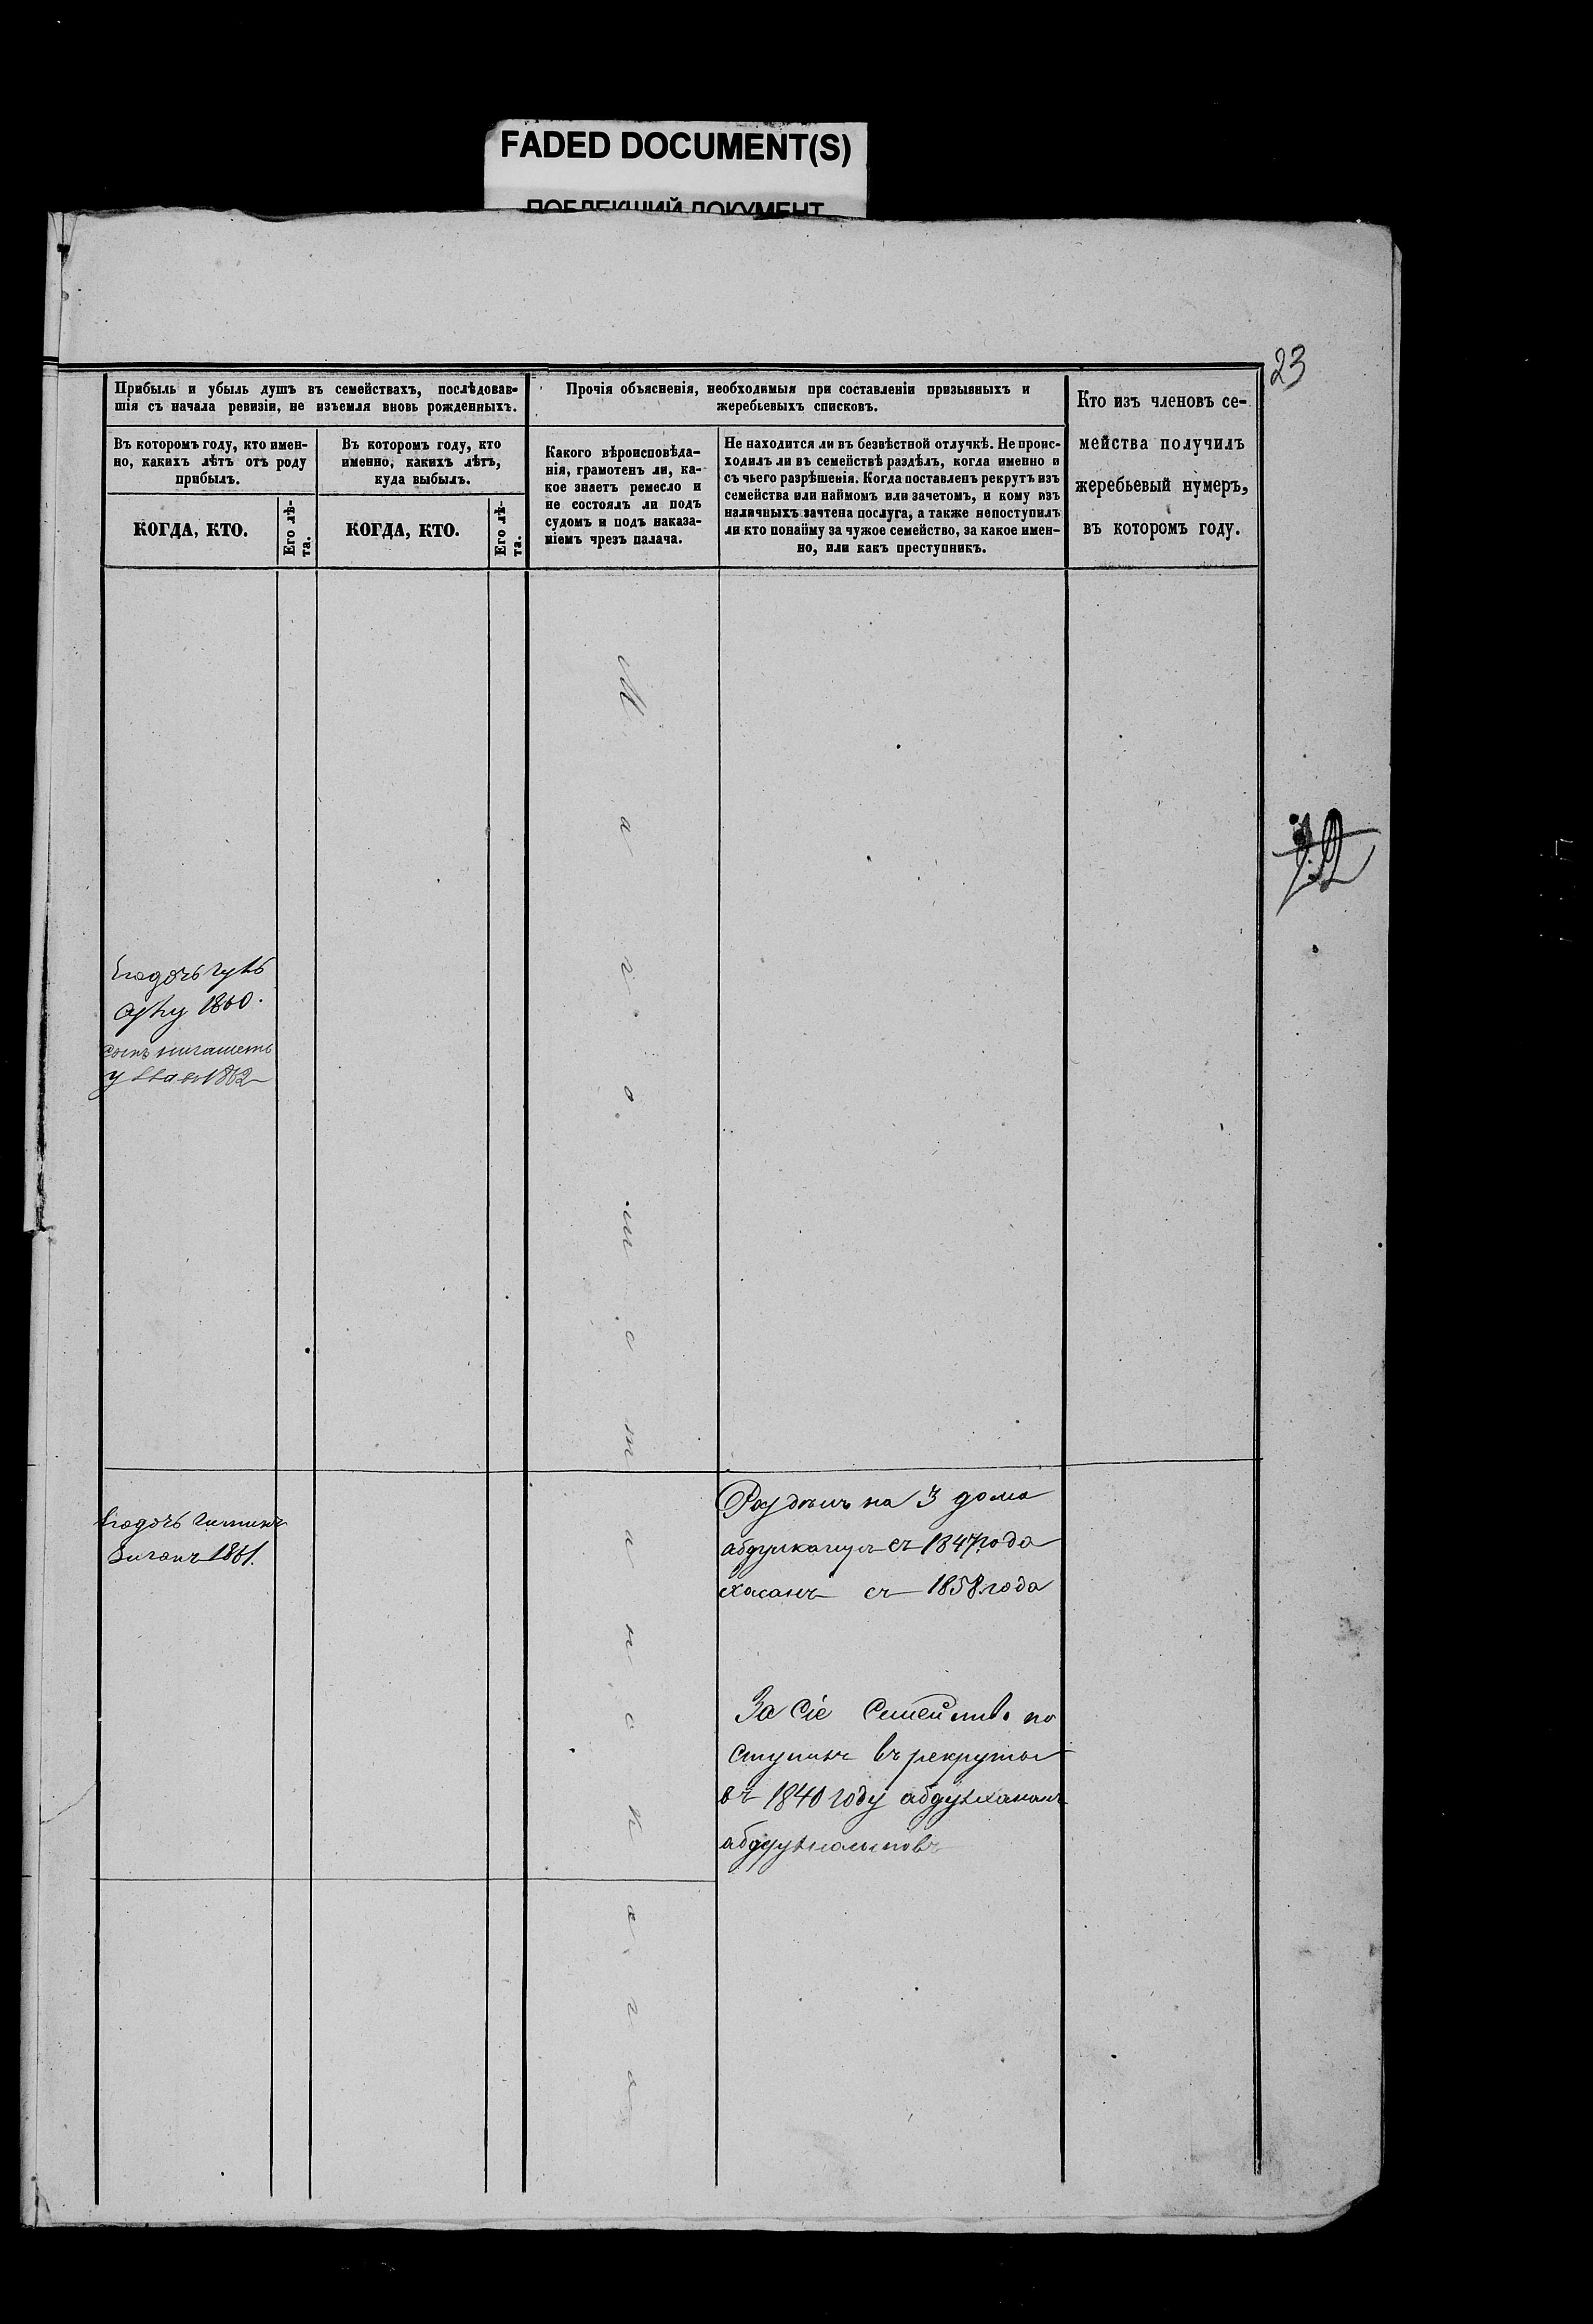 FADED DOCUMENT(S)
ПОБЛЕКШИЙ ДОКУМЕНТ
23
Прибыль и убыль душъ въ семействахъ, послѣдовав-
шія съ начала ревизіи, не изъемля вновь рожденныхъ.
Въ которомъ году, кто имен-
но, какихъ лѣтъ отъ роду
прибылъ.
Въ которомъ году, кто
именно, какихъ лѣтъ,
куда выбылъ.
КОГДА, КТО.
Его лѣ-
та.
КОГДА, КТО.
Его лѣ-
та.
Прочія объясненія, необходимыя при составленіи призывныхъ и
жеребьевыхъ списковъ.
Какого вѣроисповѣда-
нія, грамотенъ ли, ка-
кое знаетъ ремесло и
не состоялъ ли подъ
судомъ и подъ наказа-
ніемъ чрезъ палача.
Не находится ли въ безвѣстной отлучкѣ. Не проис-
ходилъ ли въ семействѣ раздѣлъ, когда именно и
съ чьего разрѣшенія. Когда поставленъ рекрутъ изъ
семейства или наймомъ или зачетомъ, и кому изъ
наличныхъ зачтена послуга, а также непоступилъ
ли кто понайму за чужое семейство, за какое имен-
но, или какъ преступникъ.
Кто изъ членовъ се-
мейства получилъ
жеребьевый нумеръ,
въ которомъ году.
Магометанскаго
1860.
сынъ
1862
1861.
на 3 дома
съ 1847 года
хасанъ съ 1858 года
За сіе семейство по
ступилъ въ рекруты
въ 1840 году